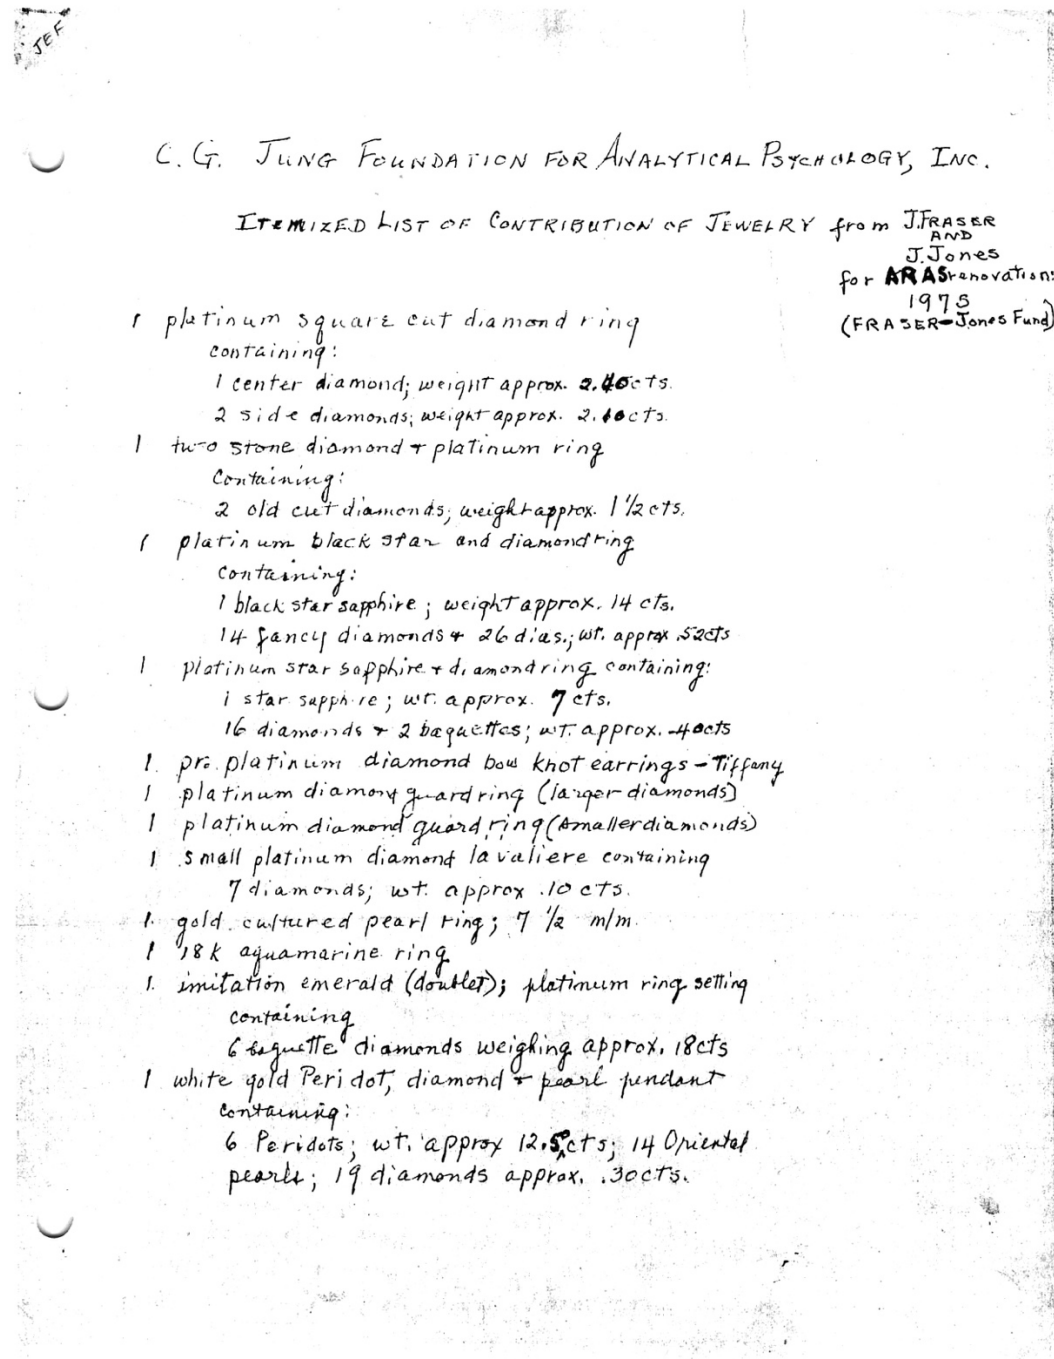 JEF
C. G. JUNG FOUNDATION FOR ANALYTICAL PSYCHOLOGY, INC.
ITEMIZED LIST OF CONTRIBUTION OF JEWELRY from J. FRASER
AND
J. Jones
for ARAS renovations
1975
(FRASER-Jones Fund)
1 platinum square cut diamond ring
containing:
1 center diamond; weight approx. 2.40cts.
2 side diamonds; weight approx. 2.10cts.
1 two stone diamond + platinum ring
Containing:
2 old cut diamonds; weight approx. 1 1/2 cts.
1 platinum black star and diamond ring
containing:
1 black star sapphire; weight approx. 14 cts.
14 fancy diamonds + 26 dias.; wt. approx .52cts
1 platinum star sapphire + diamond ring containing:
1 star sapphire; wt. approx. 7 cts.
16 diamonds + 2 baguettes; wt. approx. .40cts
1. pr. platinum diamond bow knot earrings - Tiffany
1 platinum diamond guard ring (larger diamonds)
1 platinum diamond guard ring (smaller diamonds)
1 small platinum diamond lavaliere containing
7 diamonds; wt. approx .10 cts.
1. gold cultured pearl ring; 7 1/2 m/m.
1 18k aquamarine ring
1. imitation emerald (doublet); platinum ring setting
containing
6 baguette diamonds weighing approx. 18cts
1 white gold Peridot, diamond + pearl pendant
containing:
6 Peridots; wt. approx 12.5 cts; 14 Oriental
pearls; 19 diamonds approx. .30cts.